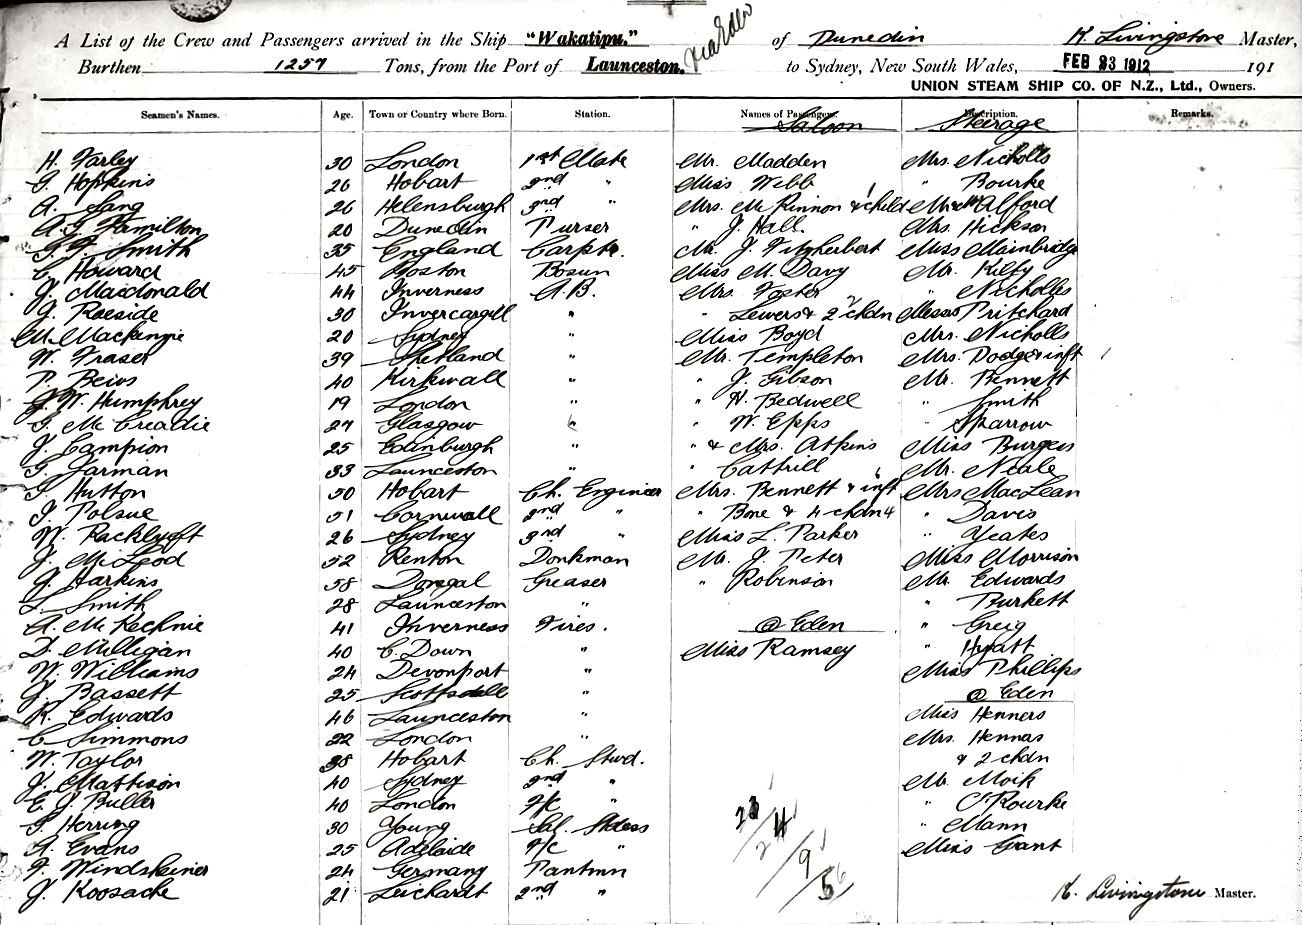 A List of the Crew and Passengers arrived in the Ship "Wakatipu." of Dunedin K Livingstone Master,
Burthen 1257 Tons, from the Port of Launceston. to Sydney, New South Wales, FEB 23 1912 191
UNION STEAM SHIP CO. OF N.Z., Ltd., Owners.
Seamen's Names. Age. Town or Country where Born. Station. Names of Passengers. Description. Remarks.
Saloon Steerage
H. Farley 30 London 1st Mate Mr. Madden Mrs. Nicholls
G. Hopkins 26 Hobart 2nd " Miss Webb " Bourke
A. Lang 26 Helensburgh 3rd " Mrs. McKinnon & child 1 Alford
A. Hamilton 20 Dunedin Purser " J. Hall. Mrs. Hickson
Smith 35 England Carptr. Mr. J. Fitzherbert Miss Mainbridge
C. Howard 45 Boston Bosun Miss M. Davy Mr. Kilby
J. Macdonald 44 Inverness A.B. Mrs. Foster " Nicholls
Keeside 30 Invercargill " " Lewers & 2 chdn 2 Messrs Pritchard
M. Mackenzie 20 Sydney " Miss Boyd Mrs. Nicholls
W. Fraser 39 Shetland " Mr. Templeton Mrs. Dodge & inft
P. 40 Kirkwall " " J. Gibson Mr. Bennett
J. W. Humphrey 19 London " " H. Bedwell " Smith
McCreadie 27 Glasgow " " W. Epps " Sparrow
J. Campion 25 Edinburgh " " & Mrs. Atkins Miss Burgess
Jarman 33 Launceston " " Cathrill Mr. Neale
Hutton 50 Hobart Ch. Engineer Mrs. Bennett & inft Mrs MacLean
Polsue 51 Cornwall 2nd " " Bone & 4 chdn 4 " Davis
W. Racklyeft 26 Sydney 3rd " Miss L. Parker " Yeates
J. McLeod 52 Renton Donkman Mr. J. Peter Miss Morrison
J. Harkins 58 Donegal Greaser " Robinson Mr. Edwards
L. Smith 28 Launceston " " Burkett
A. McKechnie 41 Inverness Fires. @ Eden " Greig
D. Milligan 40 C. Down " Miss Ramsey " Hyatt
W. Williams 24 Devonport " Miss Phillips
J. Bassett 25 Scottsdale " @ Eden
R. Edwards 46 Launceston " Miss Henners
C. Simmons 22 London " Mrs. Hennas
W. Taylor 38 Hobart Ch. Stwd. & 2 chdn
J. Mattison 40 Sydney 2nd " Mr. Moik
E. J. Buller 40 London F/c " " O'Rourke
Herring 30 Young Sal. Stdess " Mann
Evans 25 Adelaide F/c " Miss Grant
F. Windsheiner 24 Germany Pantmn
J. Koosache 21 Leichardt 2nd "
K. Livingstone Master.